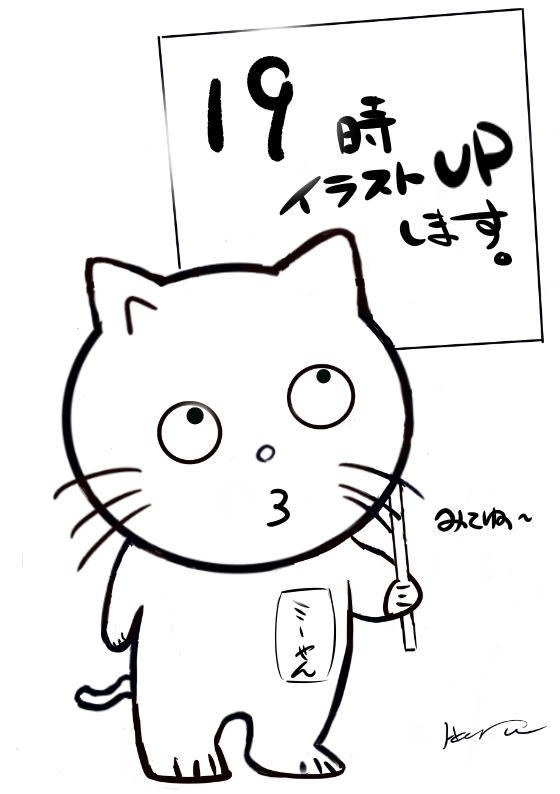 19時
イラストUP
します。
みてね〜
ミーやん
Haru